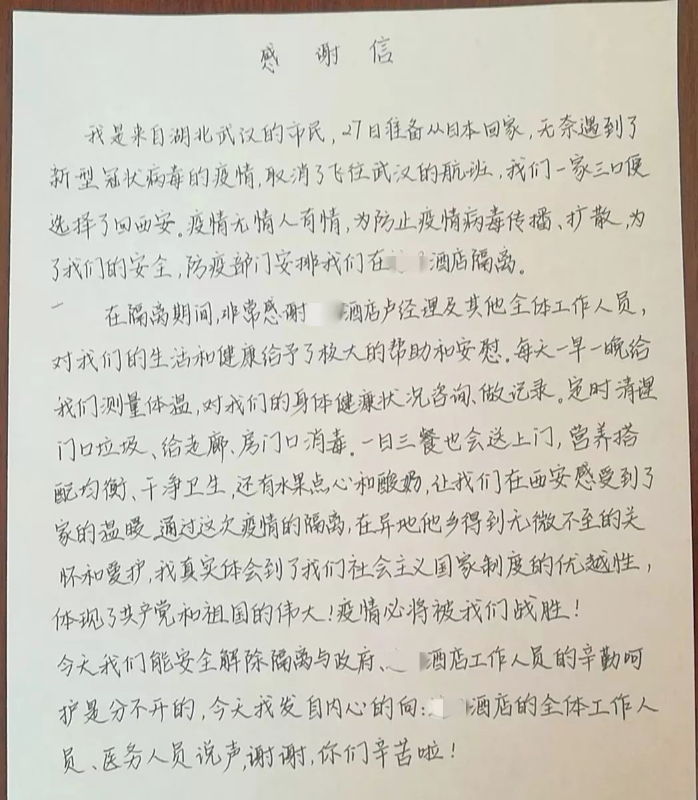 感谢信
我是来自湖北武汉的市民，27日准备从日本回家，无奈遇到了
新型冠状病毒的疫情，取消了飞往武汉的航班，我们一家三口便
选择了回西安。疫情无情人有情，为防止疫情病毒传播、扩散，为
了我们的安全，防疫部门安排我们在酒店隔离。
在隔离期间，非常感谢酒店卢经理及其他全体工作人员，
对我们的生活和健康给予了极大的帮助和安慰。每天一早一晚给
我们测量体温，对我们的身体健康状况咨询、做记录。定时清理
门口垃圾、给走廊、房门口消毒。一日三餐也会送上门，营养搭
配均衡、干净卫生，还有水果点心和酸奶，让我们在西安感受到了
家的温暖。通过这次疫情的隔离，在异地他乡得到无微不至的关
怀和爱护，我真实体会到了我们社会主义国家制度的优越性，
体现了共产党和祖国的伟大！疫情必将被我们战胜！
今天我们能安全解除隔离与政府、酒店工作人员的辛勤呵
护是分不开的，今天我发自内心的向：酒店的全体工作人
员、医务人员说声，谢谢，你们辛苦啦！